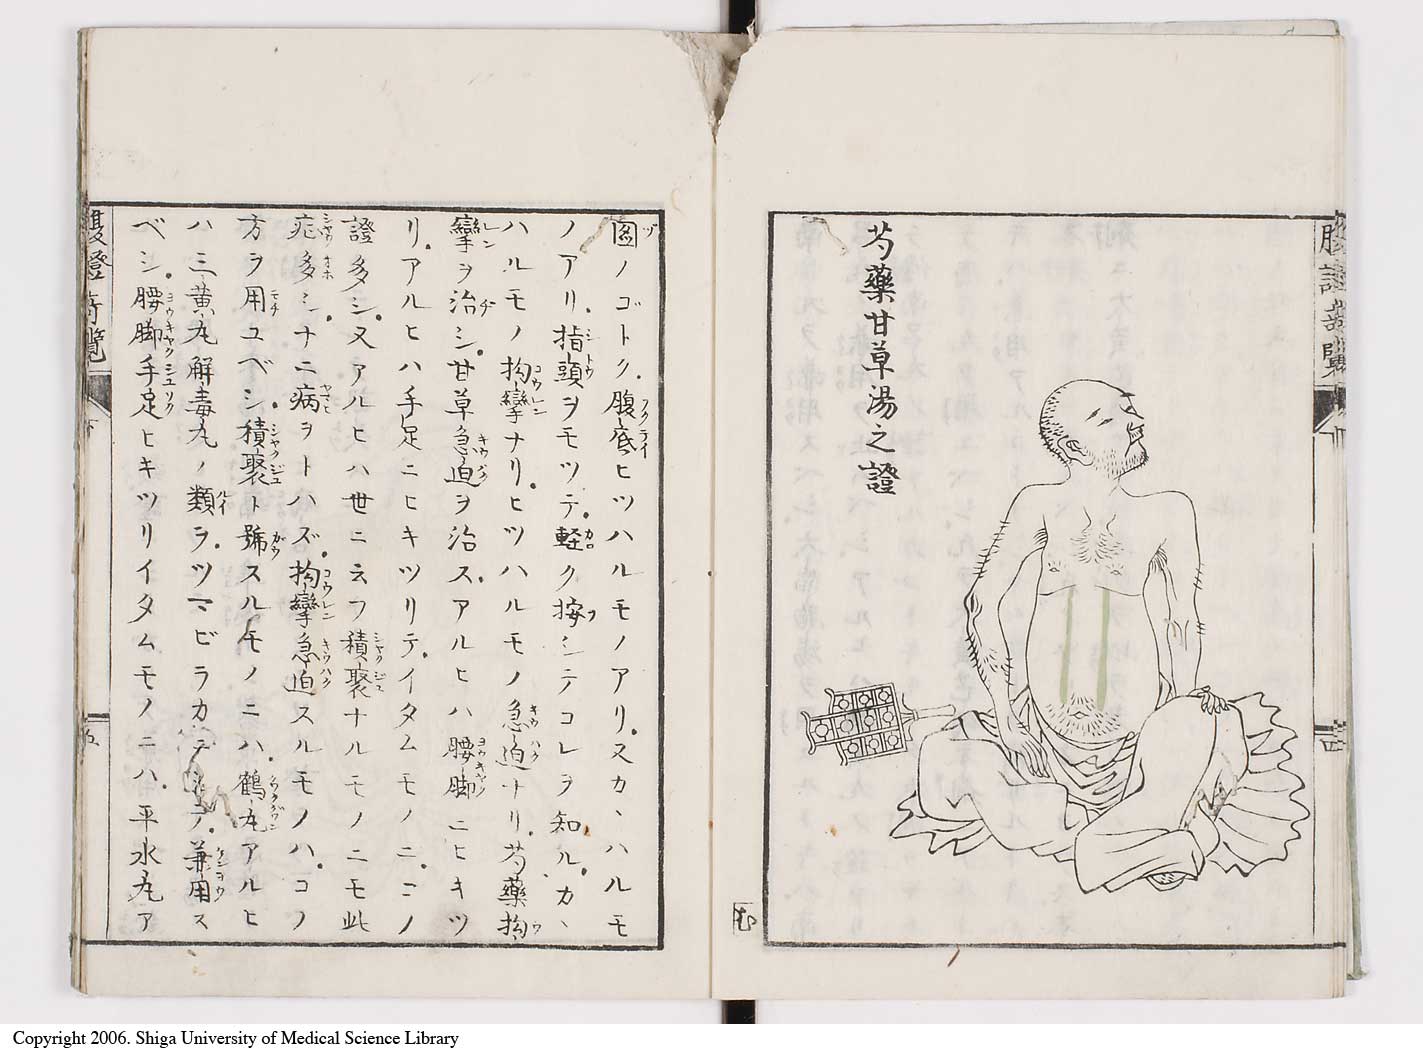 芍藥甘草湯之證
圖ノゴトク腹底ヒツハルモノアリ又カヽハルモ
ノアリ指頭ヲモツテ軽ク按シテコレヲ知ルカヽ
ハルモノ拘攣ナリヒツハルモノ急迫ナリ芍藥拘
攣ヲ治シ甘草急迫ヲ治スアルヒハ腰脚ニヒキツ
リアルヒハ手足ニヒキツリテイタムモノニコノ
證多シ又アルヒハ世ニ云フ積聚ナルモノニモ此
症多シナニ病ヲトハズ拘攣急迫スルモノハコノ
方ヲ用ユベシ積聚ト號スルモノニハ鶴丸アルヒ
ハ三黄丸解毒丸ノ類ヲツマビラカニシテ兼用ス
ベシ腰脚手足ヒキツリイタムモノニハ平水丸ア
Copyright 2006. Shiga University of Medical Science Library